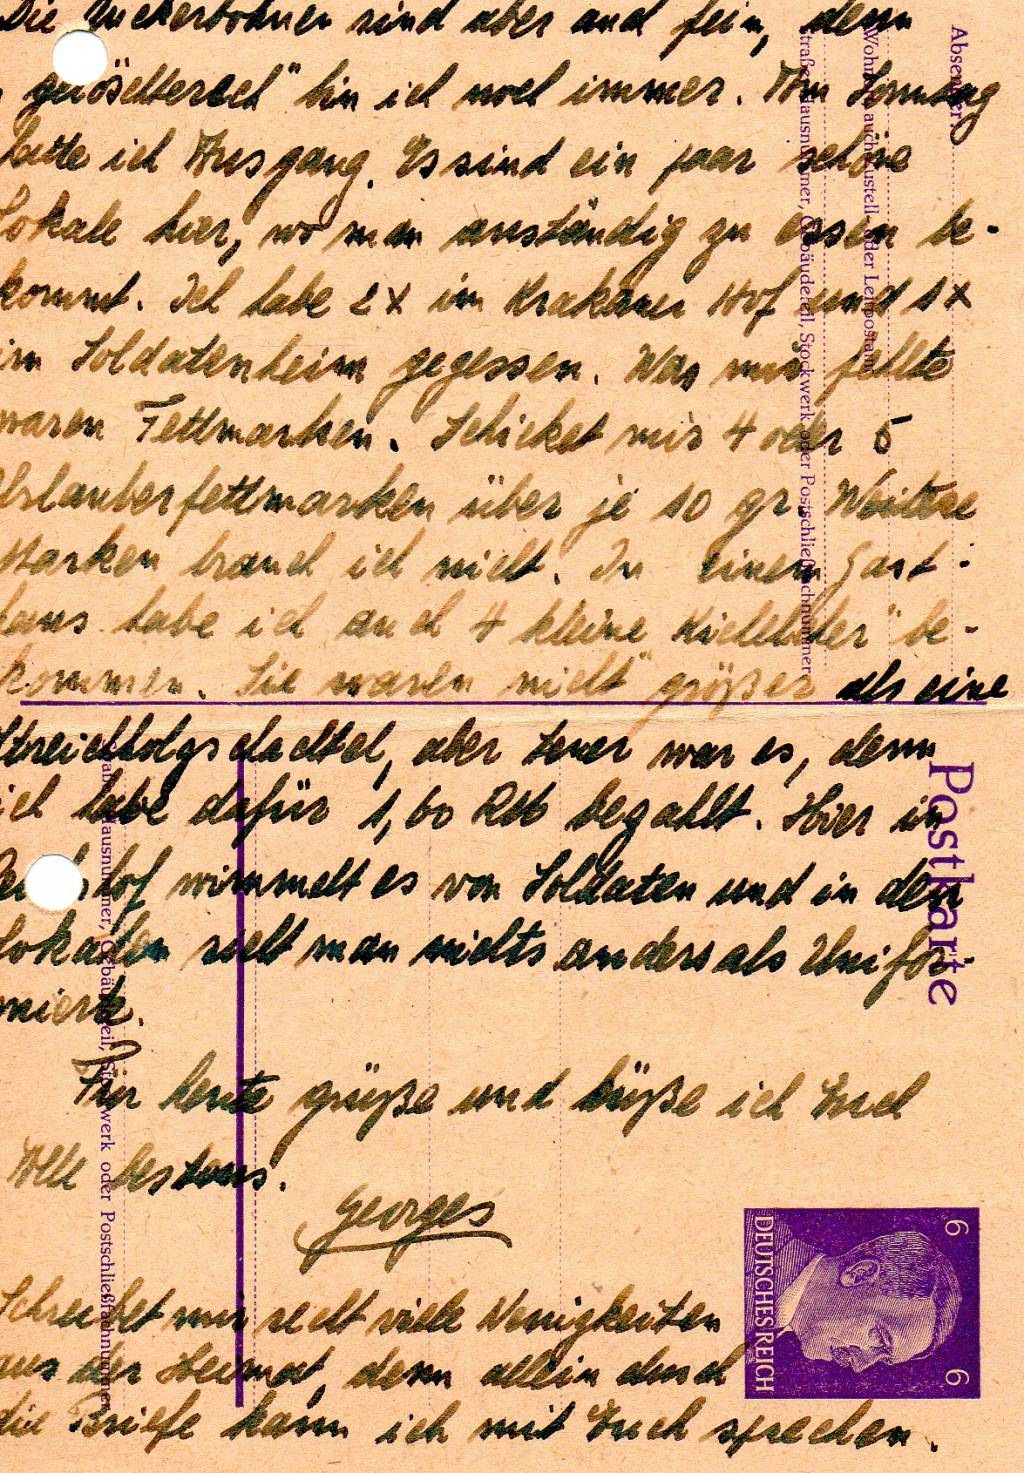 Die Zuckerbohnen sind aber auch fein, denn
" bin ich noch immer. Am Sonntag
hatte ich Ausgang. Es sind ein paar schöne
Lokale hier, wo man anständig zu essen be-
kommt. Ich habe 2x im Krakauer Hof und 1x
im Soldatenheim gegessen. Was mir fehlte
waren Fettmarken. Schicket mir 4 oder 5
Urlauberfettmarken über je 10 gr. Weitere
Marken brauch ich nicht. In einem Gast-
haus habe ich auch 4 kleine "be-
kommen. Sie waren nicht größer als eine
Streichholzschachtel, aber teuer war es, denn
ich habe dafür 1,60 RM bezahlt. Hier in
hof wimmelt es von Soldaten und in den
Lokalen sieht man nichts anders als Unifor
mierte.
Für heute grüße und küße ich Euch
Alle bestens.
Georges
Schreibet mir recht viele Wenigkeiten
aus der Heimat, denn allein durch
die Briefe kann ich mit Euch sprechen.
Absender:
Wohnort, auch Zustell- oder Leitpostamt
Straße, Hausnummer, Gebäudeteil, Stockwerk oder Postschließfachnummer
Postkarte
Straße, Hausnummer, Gebäudeteil, Stockwerk oder Postschließfachnummer
6
6
DEUTSCHES REICH